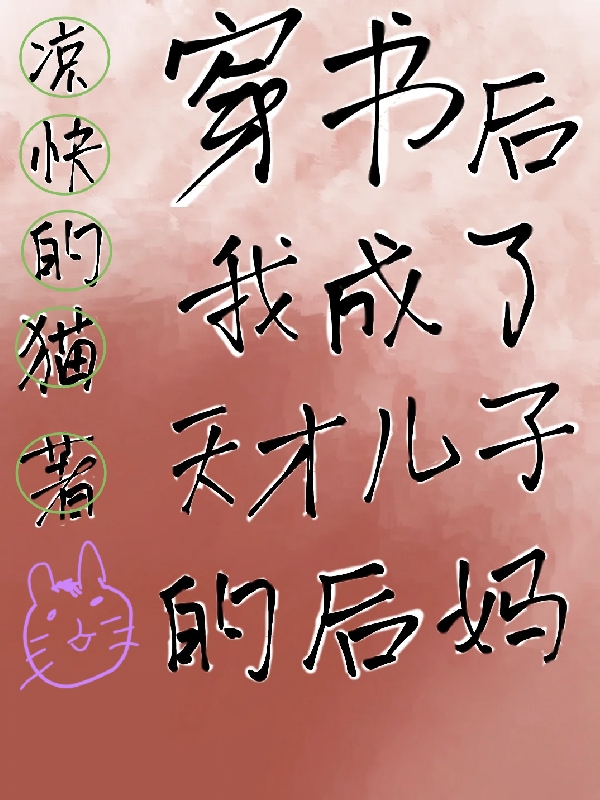 穿书后
我成了
天才儿子
的后妈
凉快的猫著